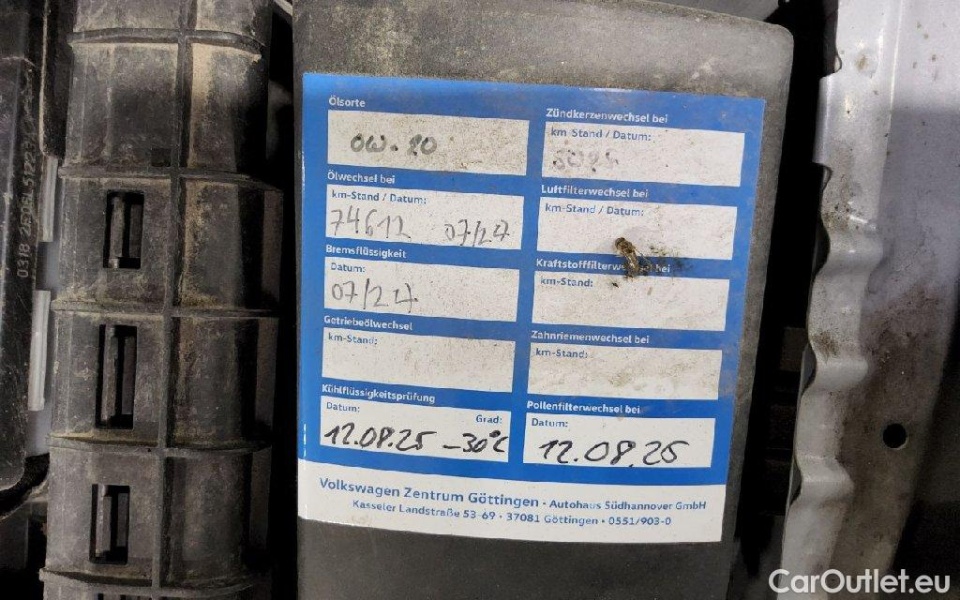 Ölsorte
0W-20
Ölwechsel bei
km-Stand / Datum:
74612 07/27
Bremsflüssigkeit
Datum:
07/27
Getriebeölwechsel
km-Stand:
Kühlflüssigkeitsprüfung
Datum: Grad:
12.08.25 -30°C
Zündkerzenwechsel bei
km-Stand / Datum:
Luftfilterwechsel bei
km-Stand / Datum:
Kraftstofffilterwechsel bei
km-Stand:
Zahnriemenwechsel bei
km-Stand:
Pollenfilterwechsel bei
Datum:
12.08.25
Volkswagen Zentrum Göttingen · Autohaus Südhannover GmbH
Kasseler Landstraße 53-69 · 37081 Göttingen · 0551/903-0
CarOutlet.eu